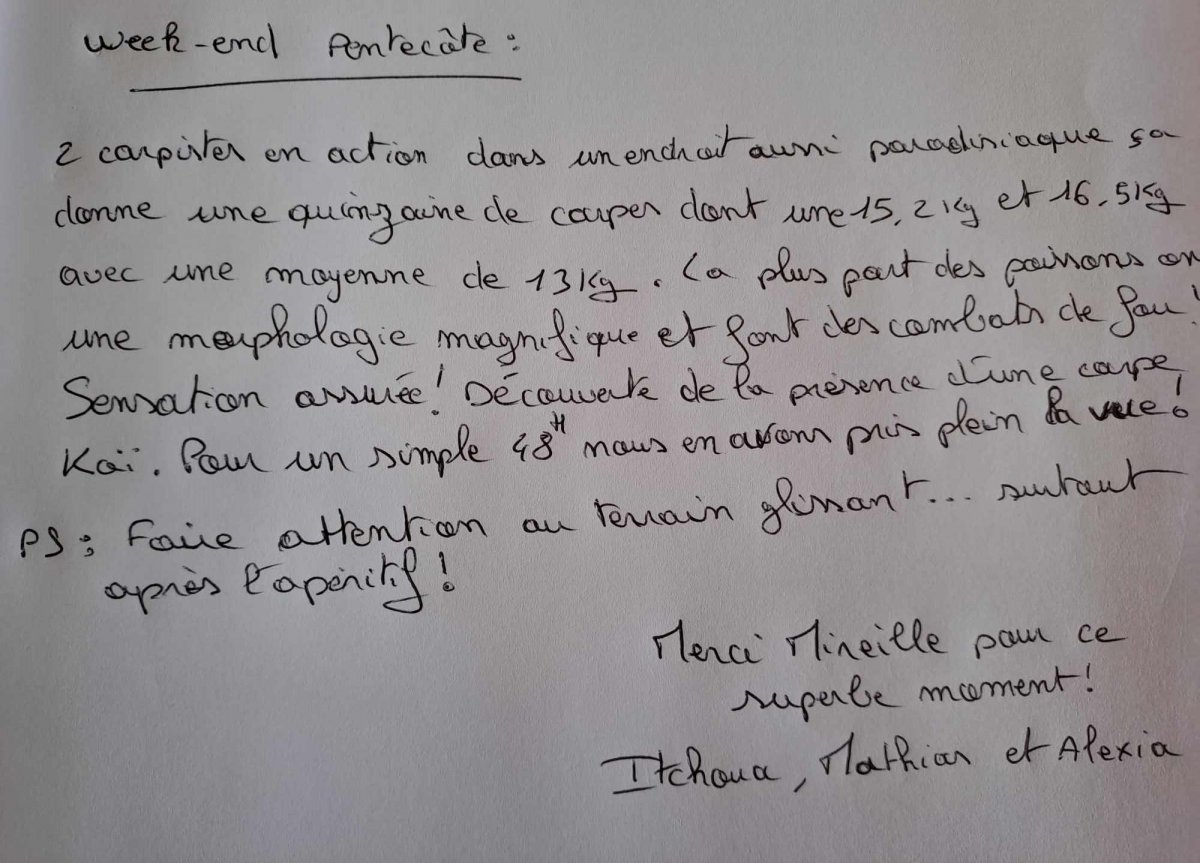 Week-end Pentecôte :
2 carpistes en action dans un endroit aussi paradisiaque ça
donne une quinzaine de carpes dont une 15,2 Kg et 16,5 Kg
avec une moyenne de 13 Kg. La plus part des poissons on
une morphologie magnifique et font des combats de fou !
Sensation assurée ! Découverte de la présence d'une carpe
Koï. Pour un simple 48H nous en avons pris plein la vue !
PS : Faire attention au terrain glissant... surtout
après l'apéritif !
Merci Mireille pour ce
superbe moment !
Itchoua, Mathias et Alexia